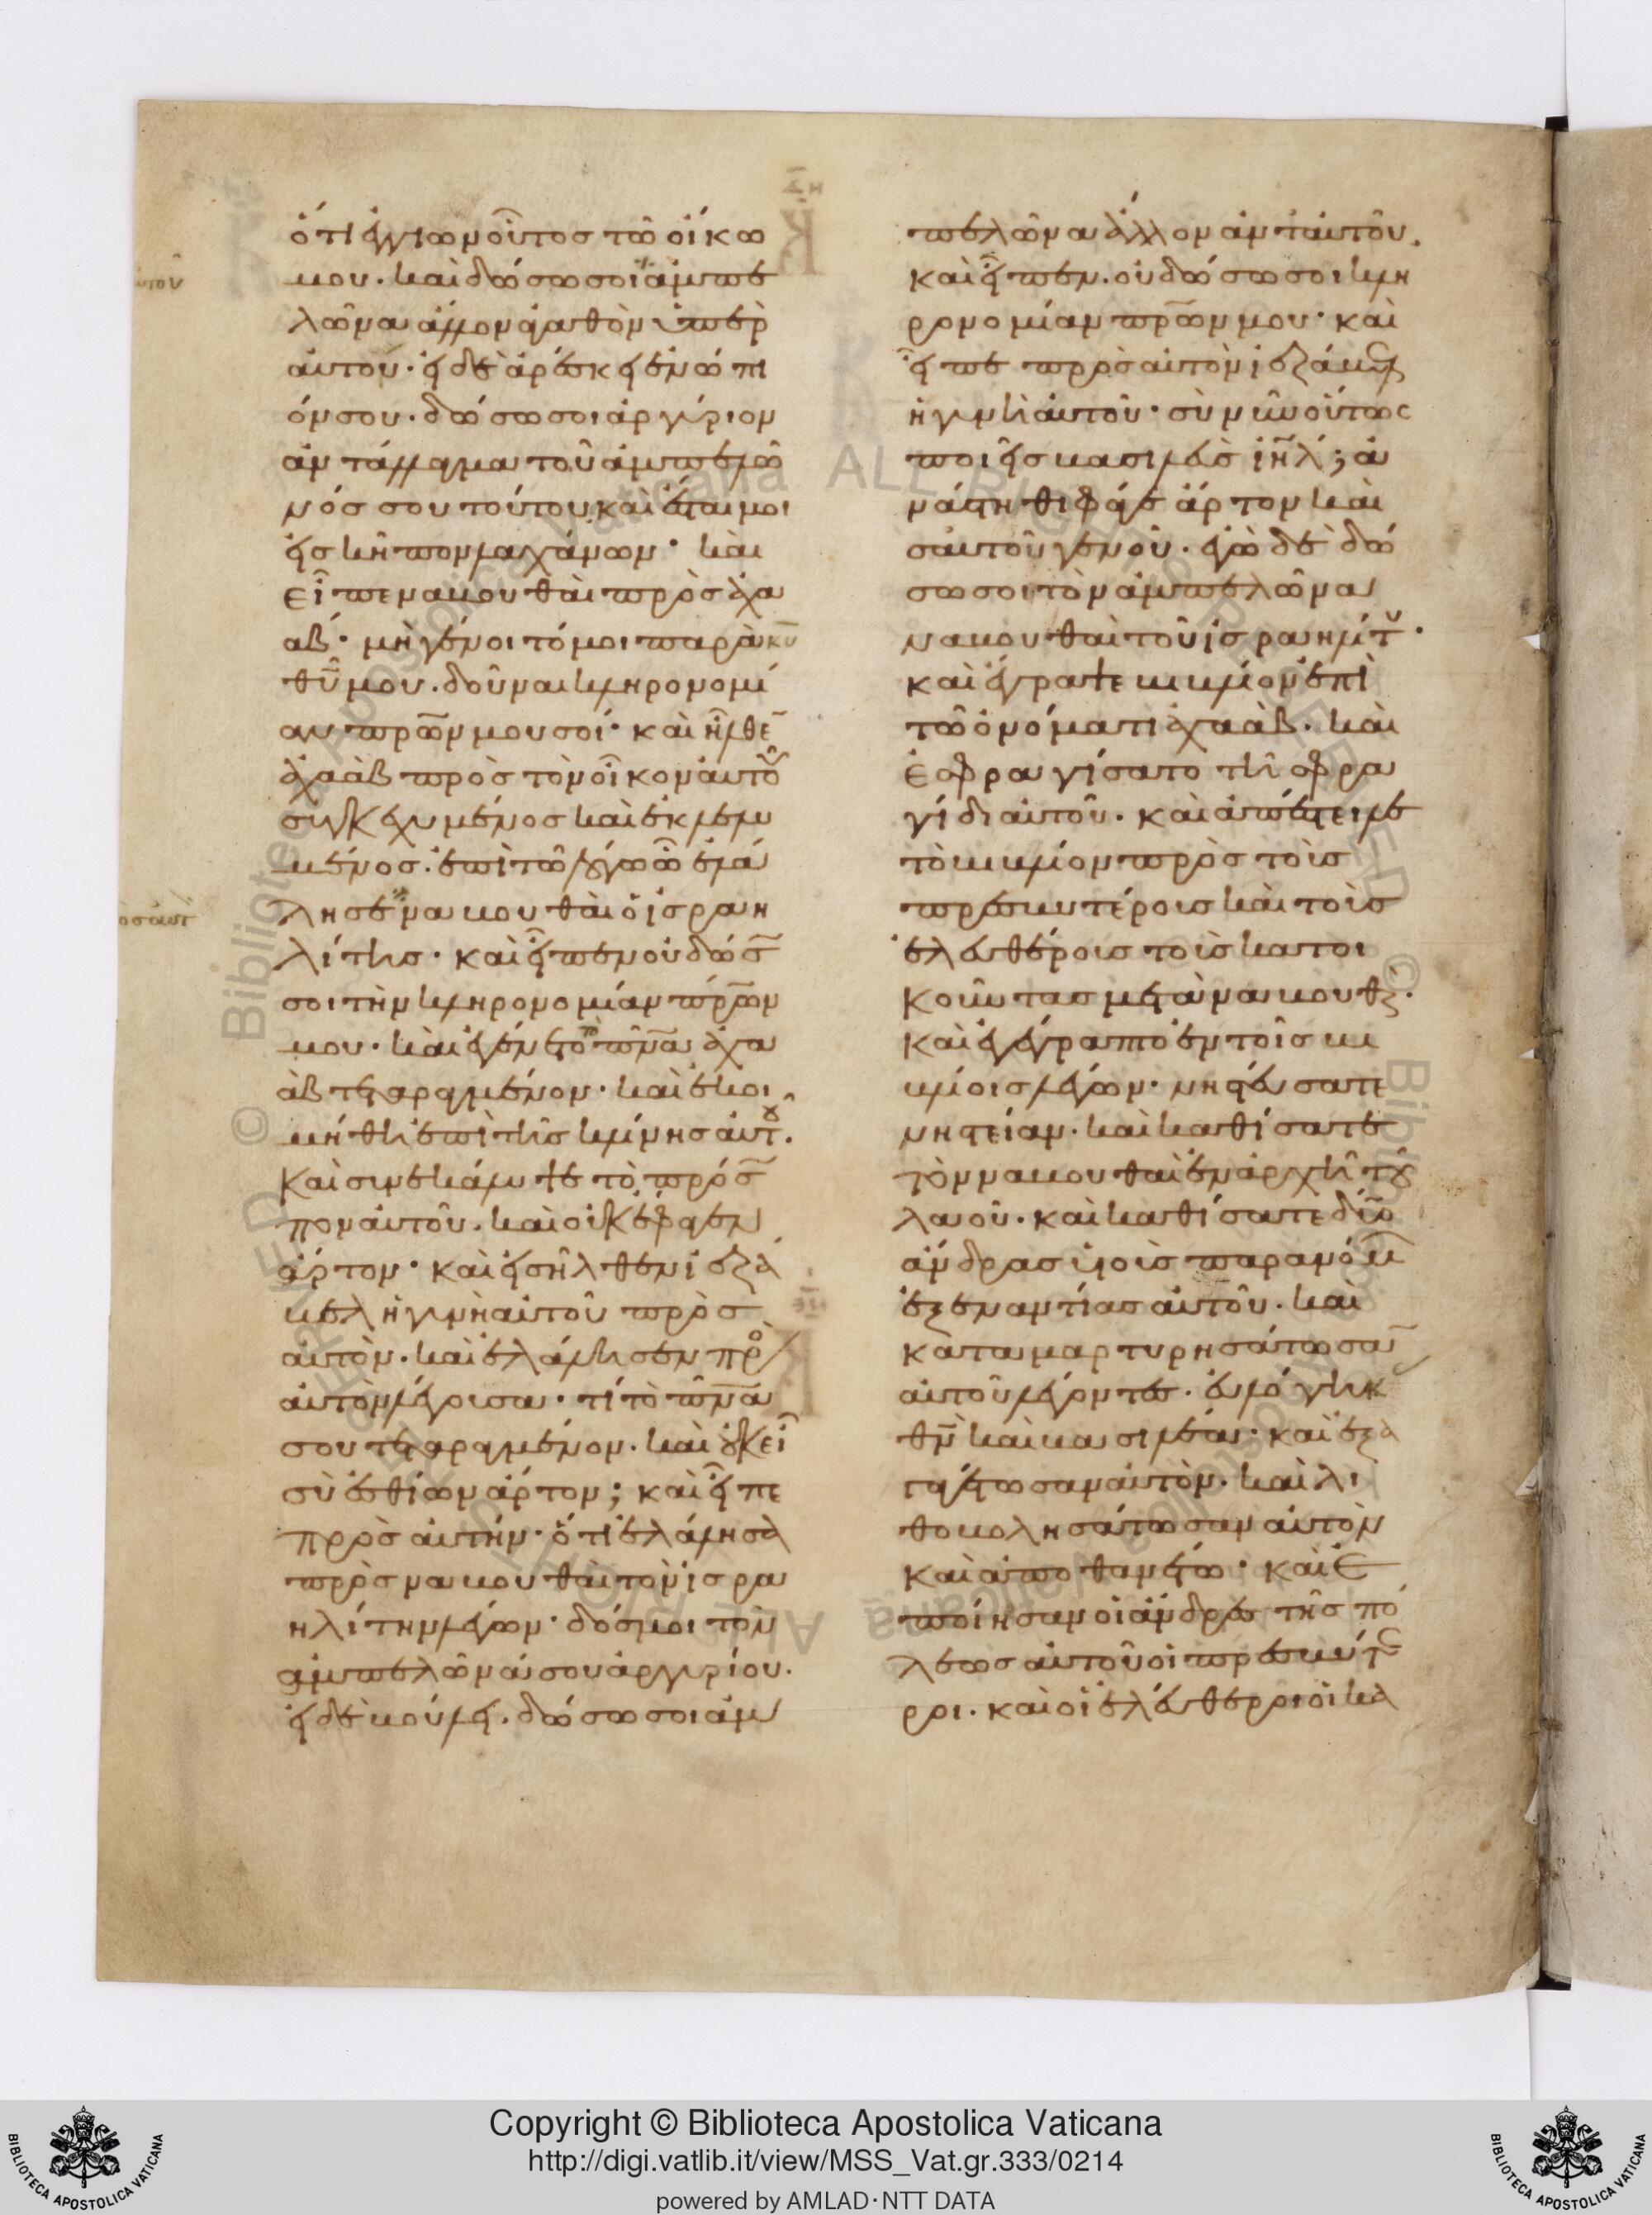 ὅτι ἐγγίων οὗτος τῶ οἴκω
μου· καὶ δώσω σοι ἀμπε
λῶνα ἄλλον ἀγαθὸν ὑπὲρ
αὐτοῦ· εἰ δὲ ἀρέσκει ἐνώπι
όν σου· δώσω σοι ἀργύριον
ἀντάλλαγμα τοῦ ἀμπελῶ
νός σου τούτου καὶ ἔσται μοι
εἰς κῆπον λαχάνων· καὶ
εἶπε ναβουθαὶ πρὸς ἀχα
άβ· μὴ γένοιτό μοι παρὰ κυ
θυ μου· δοῦναι κληρονομί
αν πρων μου σοί· καὶ ἦλθε
ἀχαὰβ πρὸς τὸν οἶκον αὐτοῦ
συγκεχυμένος καὶ ἐκλελυ
μένος· ἐπὶ τῶ λόγω ὧ ἐλά
λησε ναβουθαὶ ὁ ἰσραη
λίτης· καὶ εἶπεν οὐ δώσω
σοι τὴν κληρονομίαν πρων
μου· καὶ ἐγένετο τὸ πνα ἀχα
ὰβ τεταραγμένον· καὶ ἐκοι
μήθη ἐπὶ τῆς κλίνης αὐτοῦ·
καὶ συνεκάλυψε τὸ πρόσω
πον αὐτοῦ· καὶ οὐκ ἔφαγεν
ἄρτον· καὶ εἰσῆλθεν ἰεζά
βελ ἡ γυνὴ αὐτοῦ πρὸς
αὐτὸν· καὶ ἐλάλησεν προς
αὐτὸν λέγουσα· τί τὸ πνα
σου τεταραγμένον· καὶ οὐκ εἶ
σὺ ἐσθίων ἄρτον; καὶ εἶπε
πρὸς αὐτήν· ὅτι ἐλάλησα
πρὸς ναβουθαὶ τὸν ἰσρα
ηλίτην λέγων· δός μοι τὸν
ἀμπελῶνά σου ἀργυρίου·
εἰ δὲ βούλει· δώσω σοι ἀμ
πελῶνα ἄλλον ἀντ' αὐτοῦ·
καὶ εἶπεν· οὐ δώσω σοι κλη
ρονομίαν πρων μου· καὶ
εἶπε πρὸς αὐτὸν ἰεζάβελ
ἡ γυνὴ αὐτοῦ· σὺ νῦν οὕτως
ποιεῖς βασιλέα ἐπὶ ιηλ; ἀ
νάστηθι φάγε ἄρτον καὶ
σαυτοῦ γενοῦ· ἐγὼ δὲ δώ
σω σοι τὸν ἀμπελῶνα
ναβουθαὶ τοῦ ἰσραηλίτου·
καὶ ἔγραψε βιβλίον ἐπὶ
τῶ ὀνόματι ἀχαὰβ· καὶ
ἐσφραγίσατο τῆ σφρα
γίδι αὐτοῦ· καὶ ἀπέστειλε
τὸ βιβλίον πρὸς τοὺς
πρεσβυτέρους καὶ τοὺς
ἐλευθέρους τοὺς κατοι
κοῦντας μετὰ ναβουθαί·
καὶ ἐγέγραπτο ἐν τοῖς βι
βλίοις λέγων· νηστεύσατε
νηστείαν· καὶ καθίσατε
τὸν ναβουθαὶ ἐν ἀρχῆ τοῦ
λαοῦ· καὶ καθίσατε δύο
ἄνδρας υἱοὺς παρανόμων
ἐξεναντίας αὐτοῦ· καὶ
καταμαρτυρησάτωσαν
αὐτοῦ λέγοντες· εὐλόγηκε
θν καὶ βασιλέα· καὶ ἐξα
γαγέτωσαν αὐτὸν· καὶ λι
θοβολησάτωσαν αὐτὸν
καὶ ἀποθανέτω· καὶ ἐ
ποίησαν οἱ ἄνδρες τῆς πό
λεως αὐτοῦ οἱ πρεσβύτε
ροι· καὶ οἱ ἐλεύθεροι οἱ κα
Copyright © Biblioteca Apostolica Vaticana
http://digi.vatlib.it/view/MSS_Vat.gr.333/0214
powered by AMLAD·NTT DATA
BIBLIOTECA APOSTOLICA VATICANA
BIBLIOTECA APOSTOLICA VATICANA